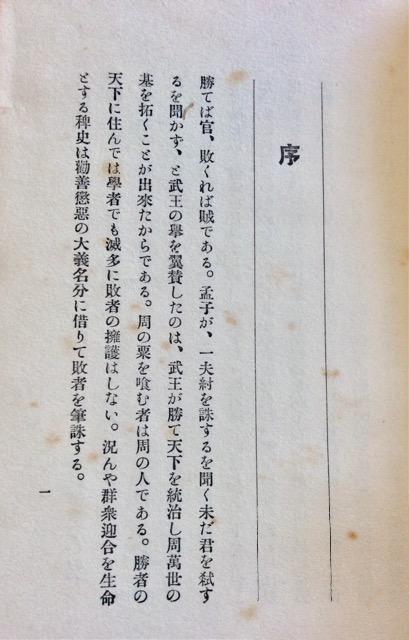 序
勝てば官、敗くれば賊である。孟子が、一夫紂を誅するを聞く未だ君を弑す
るを聞かず、と武王の擧を翼賛したのは、武王が勝て天下を統治し周萬世の
基を拓くことが出來たからである。周の粟を喰む者は周の人である。勝者の
天下に住んでは學者でも滅多に敗者の擁護はしない。況んや群衆迎合を生命
とする稗史は勸善懲惡の大義名分に借りて敗者を筆誅する。
一